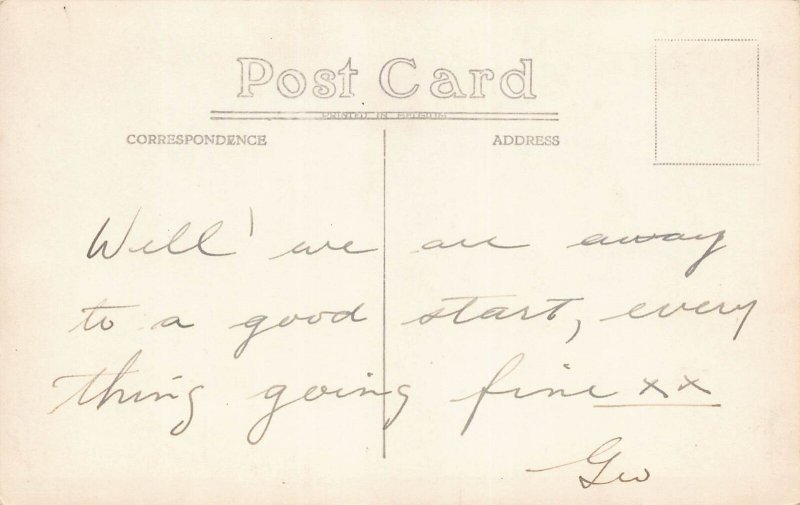 Post Card
PRINTED IN BELGIUM
CORRESPONDENCE ADDRESS
Well' we are away
to a good start, every
thing going fine xx
Geo